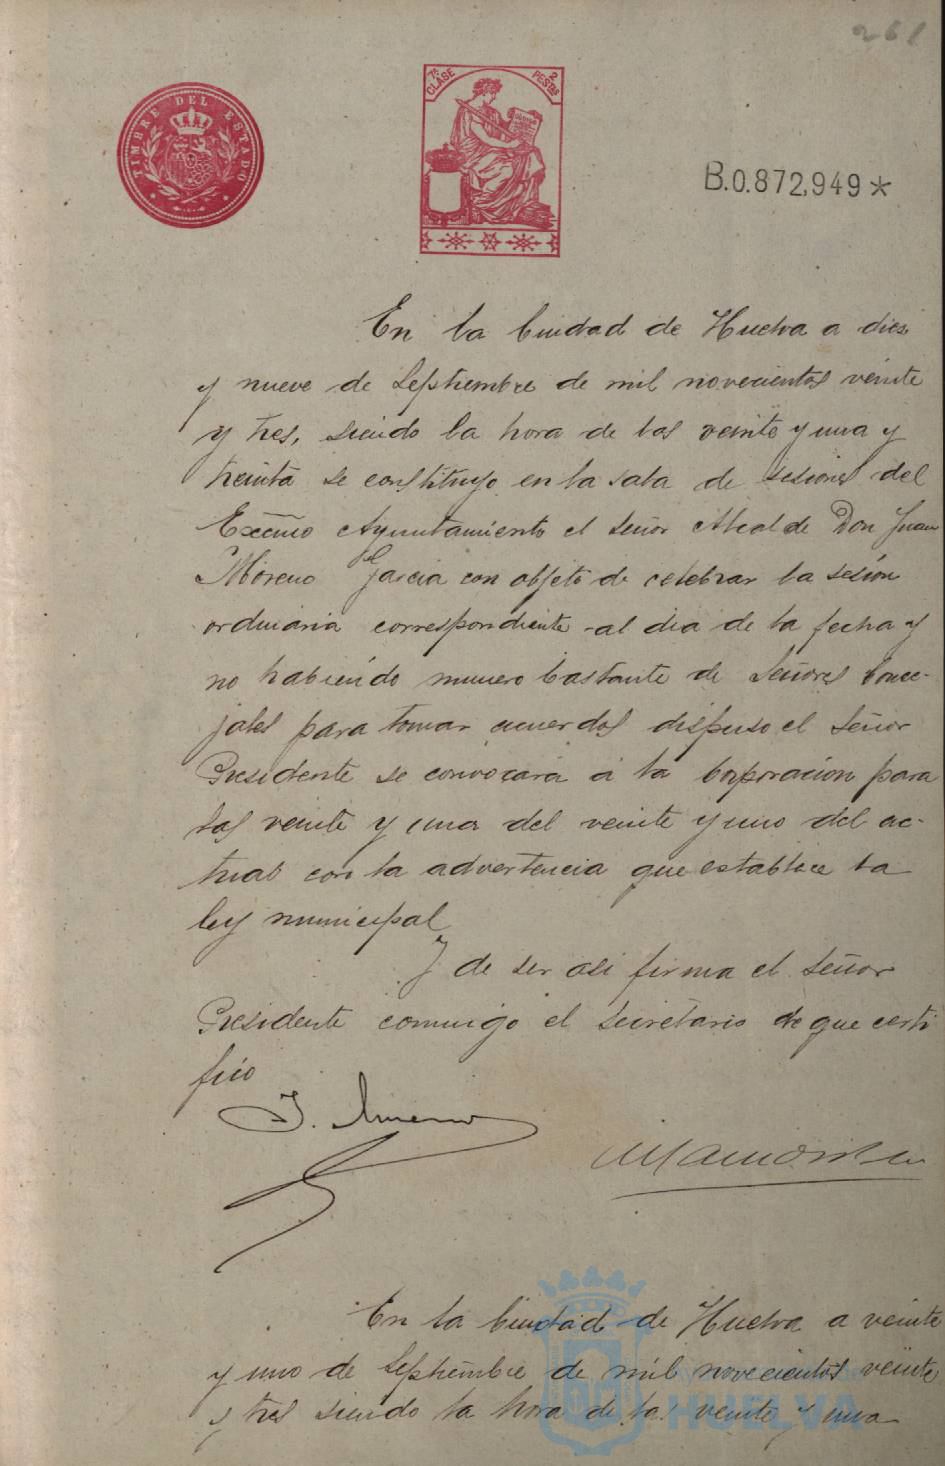 261
TIMBRE DEL ESTADO
7ª CLASE 2 PESTAS
B.0.872,949*
En la Ciudad de Huelva a diez
y nueve de Septiembre de mil novecientos veinte
y tres, siendo la hora de las veinte y una y
treinta se constituyo en la sala de sesiones del
Excmo Ayuntamiento el Señor Alcalde Don Juan
Moreno Garcia con objeto de celebrar la sesión
ordinaria correspondiente al dia de la fecha y
no habiendo numero bastante de Señores Conce-
jales para tomar acuerdos dispuso el Señor
Presidente se convocara á la Corporacion para
las veinte y una del veinte y uno del ac-
tual con la advertencia que establece la
ley municipal
Y de ser asi firma el Señor
Presidente conmigo el Secretario de que certi
fico
J. Moreno
En la Ciudad de Huelva a veinte
y uno de Septiembre de mil novecientos veinte
y tres siendo la hora de las veinte y una
HUELVA